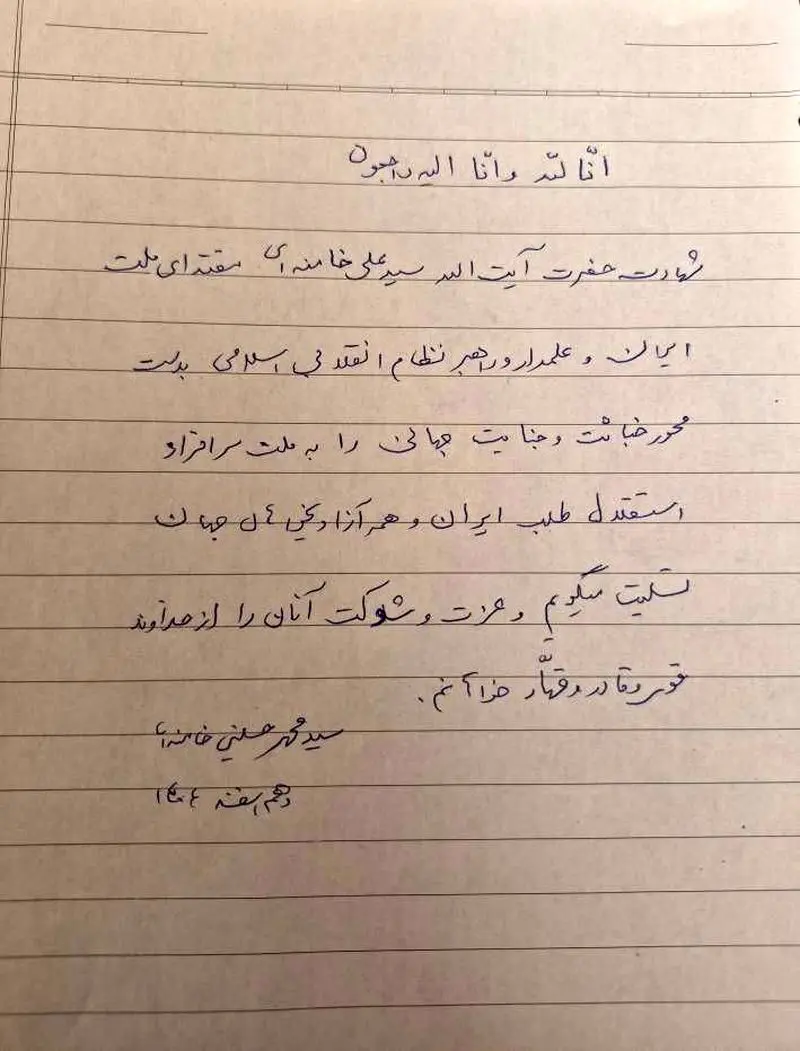 انّا لله وانّا الیه راجعون
شهادت حضرت آیت الله سید علی خامنه ای مقتدای ملت
ایران و علمدار و راهبر نظام انقلابی اسلامی بدست
محور خباثت و جنایت جهانی را به ملت سرافراز و
استقلال طلب ایران و همه آزادیخواهان جهان
تسلیت میگویم و عزت و شوکت آنان را از خداوند
قوی و قادر و قهّار خواهانم.
سید محمد حسینی خامنه‌ای
دهم اسفند ۱۴۰۴